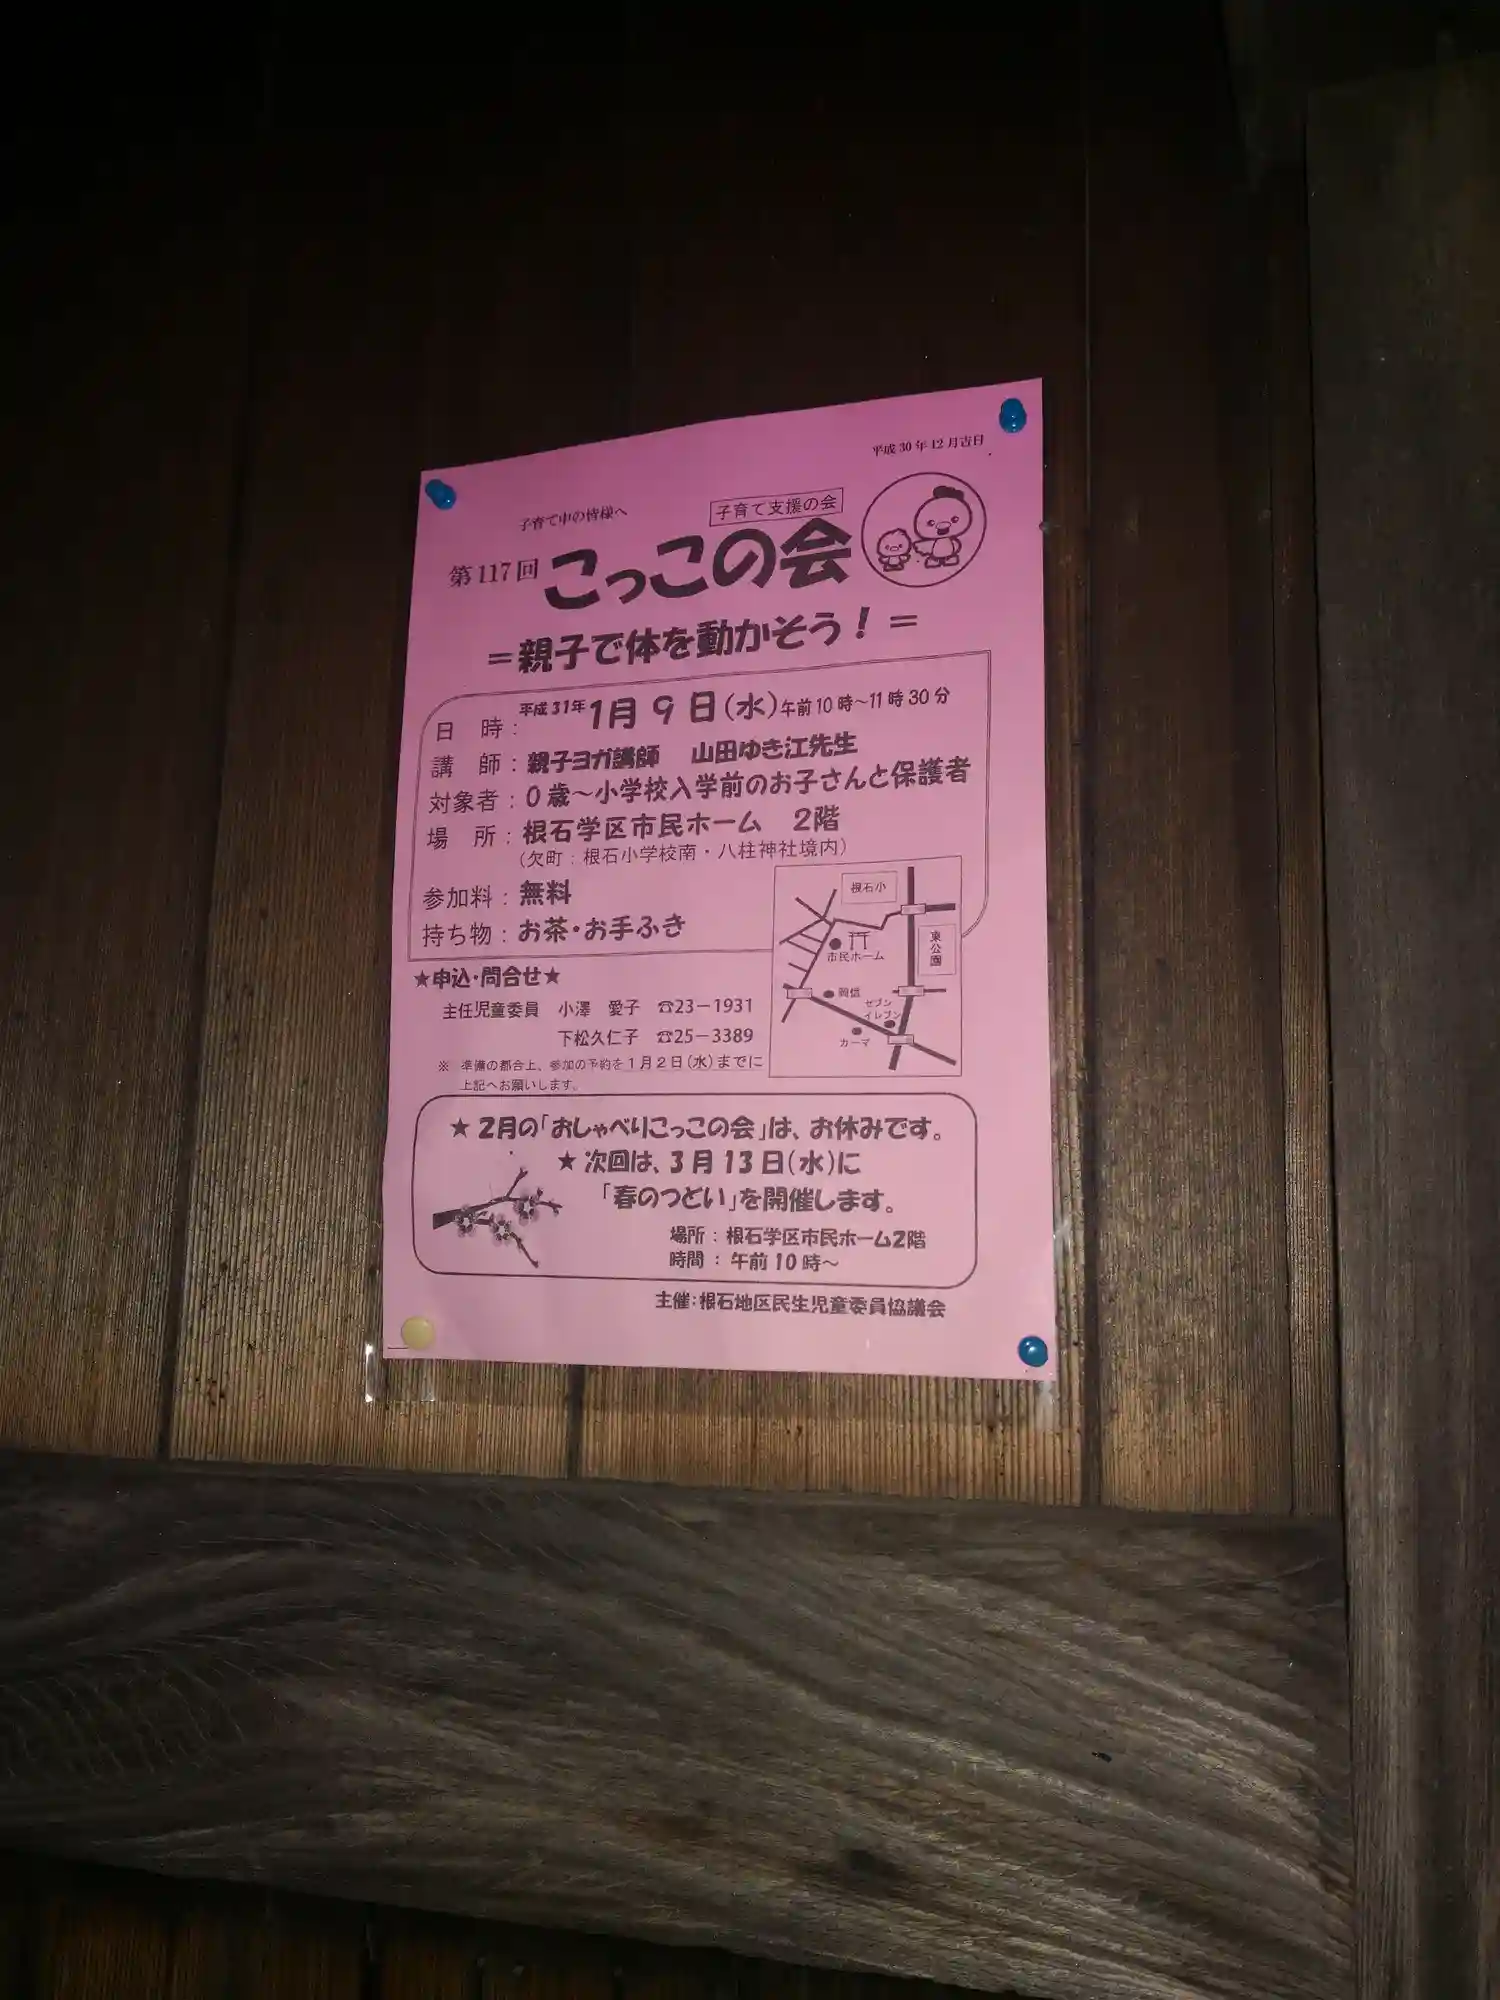 平成30年12月吉日
子育て中の皆様へ
子育て支援の会
第117回 こっこの会
=親子で体を動かそう!=
日 時: 平成31年1月9日(水)午前10時~11時30分
講 師: 親子ヨガ講師 山田ゆき江先生
対象者: 0歳~小学校入学前のお子さんと保護者
場 所: 根石学区市民ホーム 2階
(欠町:根石小学校南・八柱神社境内)
参加料: 無料
持ち物: お茶・お手ふき
根石小
東公園
市民ホーム
岡信
セブン
イレブン
カーマ
★申込・問合せ★
主任児童委員 小澤 愛子 ☎23-1931
下松久仁子 ☎25-3389
※ 準備の都合上、参加の予約を1月2日(水)までに
上記へお願いします。
★2月の「おしゃべりこっこの会」は、お休みです。
★次回は、3月13日(水)に
「春のつどい」を開催します。
場所:根石学区市民ホーム2階
時間:午前10時~
主催:根石地区民生児童委員協議会